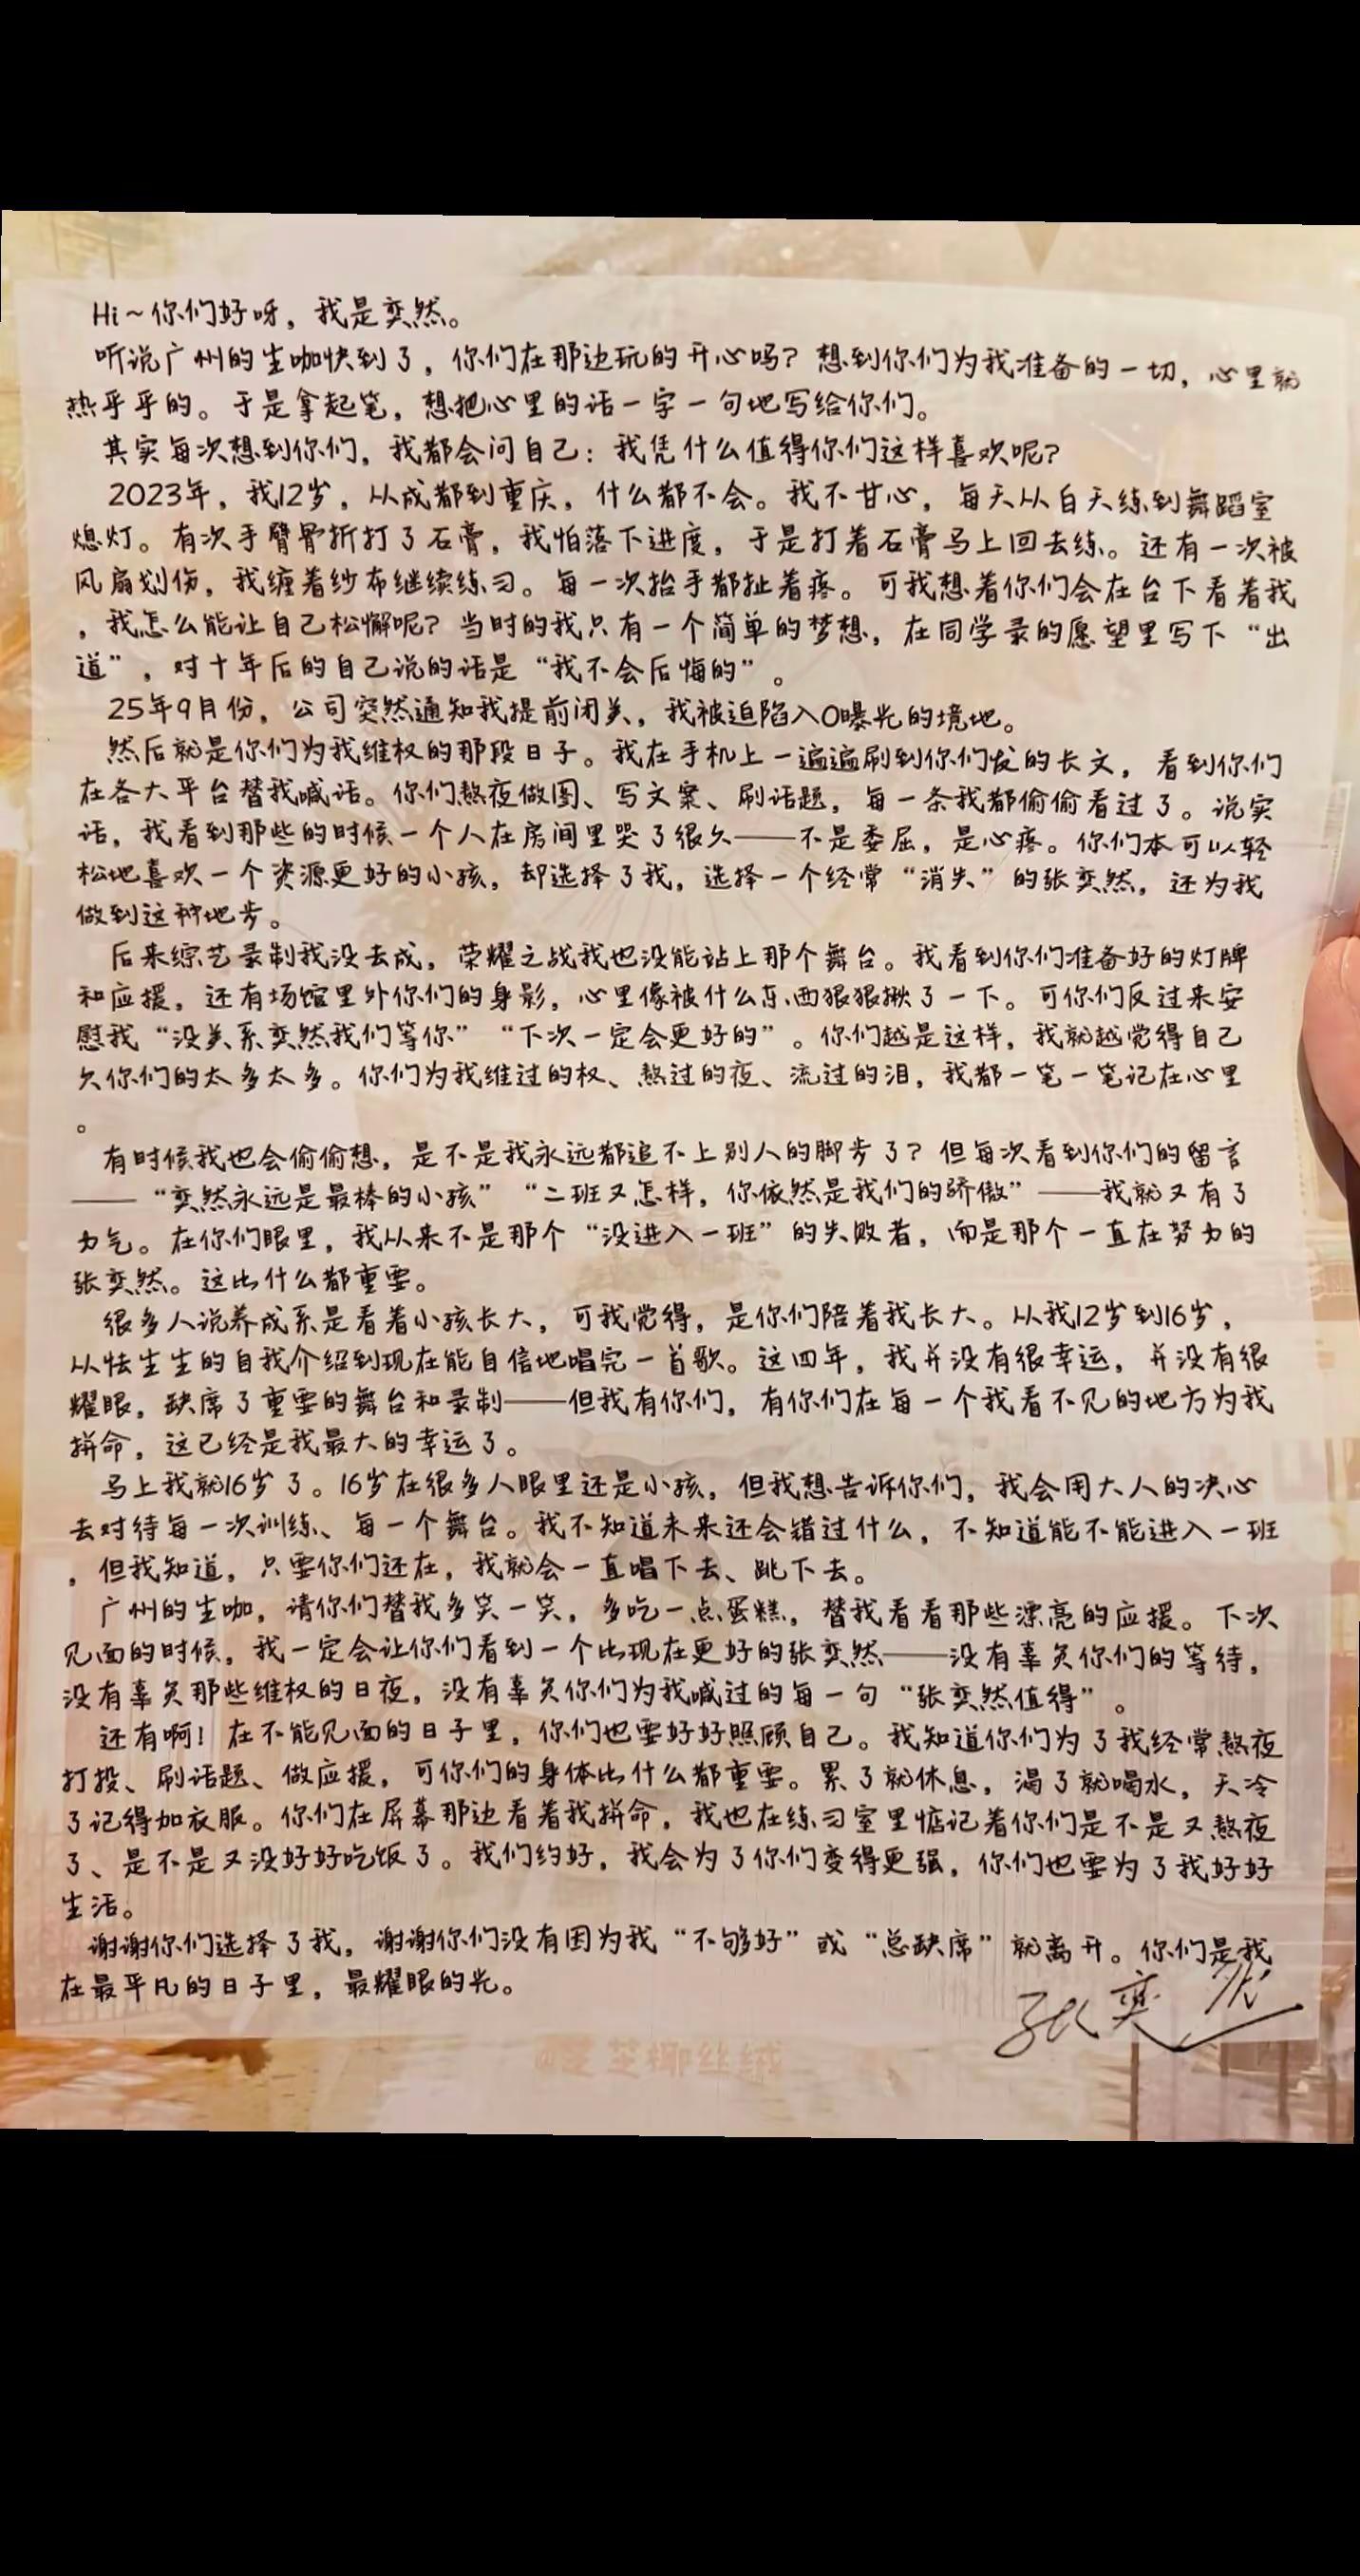 Hi~你们好呀，我是奕然。
听说广州的生咖快到了，你们在那边玩的开心吗？想到你们为我准备的一切，心里就
热乎乎的。于是拿起笔，想把心里的话一字一句地写给你们。
其实每次想到你们，我都会问自己：我凭什么值得你们这样喜欢呢？
2023年，我12岁，从成都到重庆，什么都不会。我不甘心，每天从白天练到舞蹈室
熄灯。有次手臂骨折打了石膏，我怕落下进度，于是打着石膏马上回去练。还有一次被
风扇划伤，我缠着纱布继续练习。每一次抬手都扯着疼。可我想着你们会在台下看着我
，我怎么能让自己松懈呢？当时的我只有一个简单的梦想，在同学录的愿望里写下“出
道”，对十年后的自己说的话是“我不会后悔的”。
25年9月份，公司突然通知我提前闭关，我被迫陷入0曝光的境地。
然后就是你们为我维权的那段日子。我在手机上一遍遍刷到你们发的长文，看到你们
在各大平台替我喊话。你们熬夜做图、写文案、刷话题，每一条我都偷偷看过了。说实
话，我看到那些的时候一个人在房间里哭了很久——不是委屈，是心疼。你们本可以轻
松地喜欢一个资源更好的小孩，却选择了我，选择一个经常“消失”的张奕然，还为我
做到这种地步。
后来综艺录制我没去成，荣耀之战我也没能站上那个舞台。我看到你们准备好的灯牌
和应援，还有场馆里外你们的身影，心里像被什么东西狠狠揪了一下。可你们反过来安
慰我“没关系奕然我们等你”“下次一定会更好的”。你们越是这样，我就越觉得自己
欠你们的太多太多。你们为我维过的权、熬过的夜、流过的泪，我都一笔一笔记在心里
。
有时候我也会偷偷想，是不是我永远都追不上别人的脚步了？但每次看到你们的留言
——“奕然永远是最棒的小孩”“二班又怎样，你依然是我们的骄傲”——我就又有了
力气。在你们眼里，我从来不是那个“没进入一班”的失败者，而是那个一直在努力的
张奕然。这比什么都重要。
很多人说养成系是看着小孩长大，可我觉得，是你们陪着我长大。从我12岁到16岁，
从怯生生的自我介绍到现在能自信地唱完一首歌。这四年，我并没有很幸运，并没有很
耀眼，缺席了重要的舞台和录制——但我有你们，有你们在每一个我看不见的地方为我
拼命，这已经是我最大的幸运了。
马上我就16岁了。16岁在很多人眼里还是小孩，但我想告诉你们，我会用大人的决心
去对待每一次训练、每一个舞台。我不知道未来还会错过什么，不知道能不能进入一班
，但我知道，只要你们还在，我就会一直唱下去、跳下去。
广州的生咖，请你们替我多笑一笑，多吃一点蛋糕，替我看看那些漂亮的应援。下次
见面的时候，我一定会让你们看到一个比现在更好的张奕然——没有辜负你们的等待，
没有辜负那些维权的日夜，没有辜负你们为我喊过的每一句“张奕然值得”。
还有啊！在不能见面的日子里，你们也要好好照顾自己。我知道你们为了我经常熬夜
打投、刷话题、做应援，可你们的身体比什么都重要。累了就休息，渴了就喝水，天冷
了记得加衣服。你们在屏幕那边看着我拼命，我也在练习室里惦记着你们是不是又熬夜
了、是不是又没好好吃饭了。我们约好，我会为了你们变得更强，你们也要为了我好好
生活。
谢谢你们选择了我，谢谢你们没有因为我“不够好”或“总缺席”就离开。你们是我
在最平凡的日子里，最耀眼的光。
张奕然